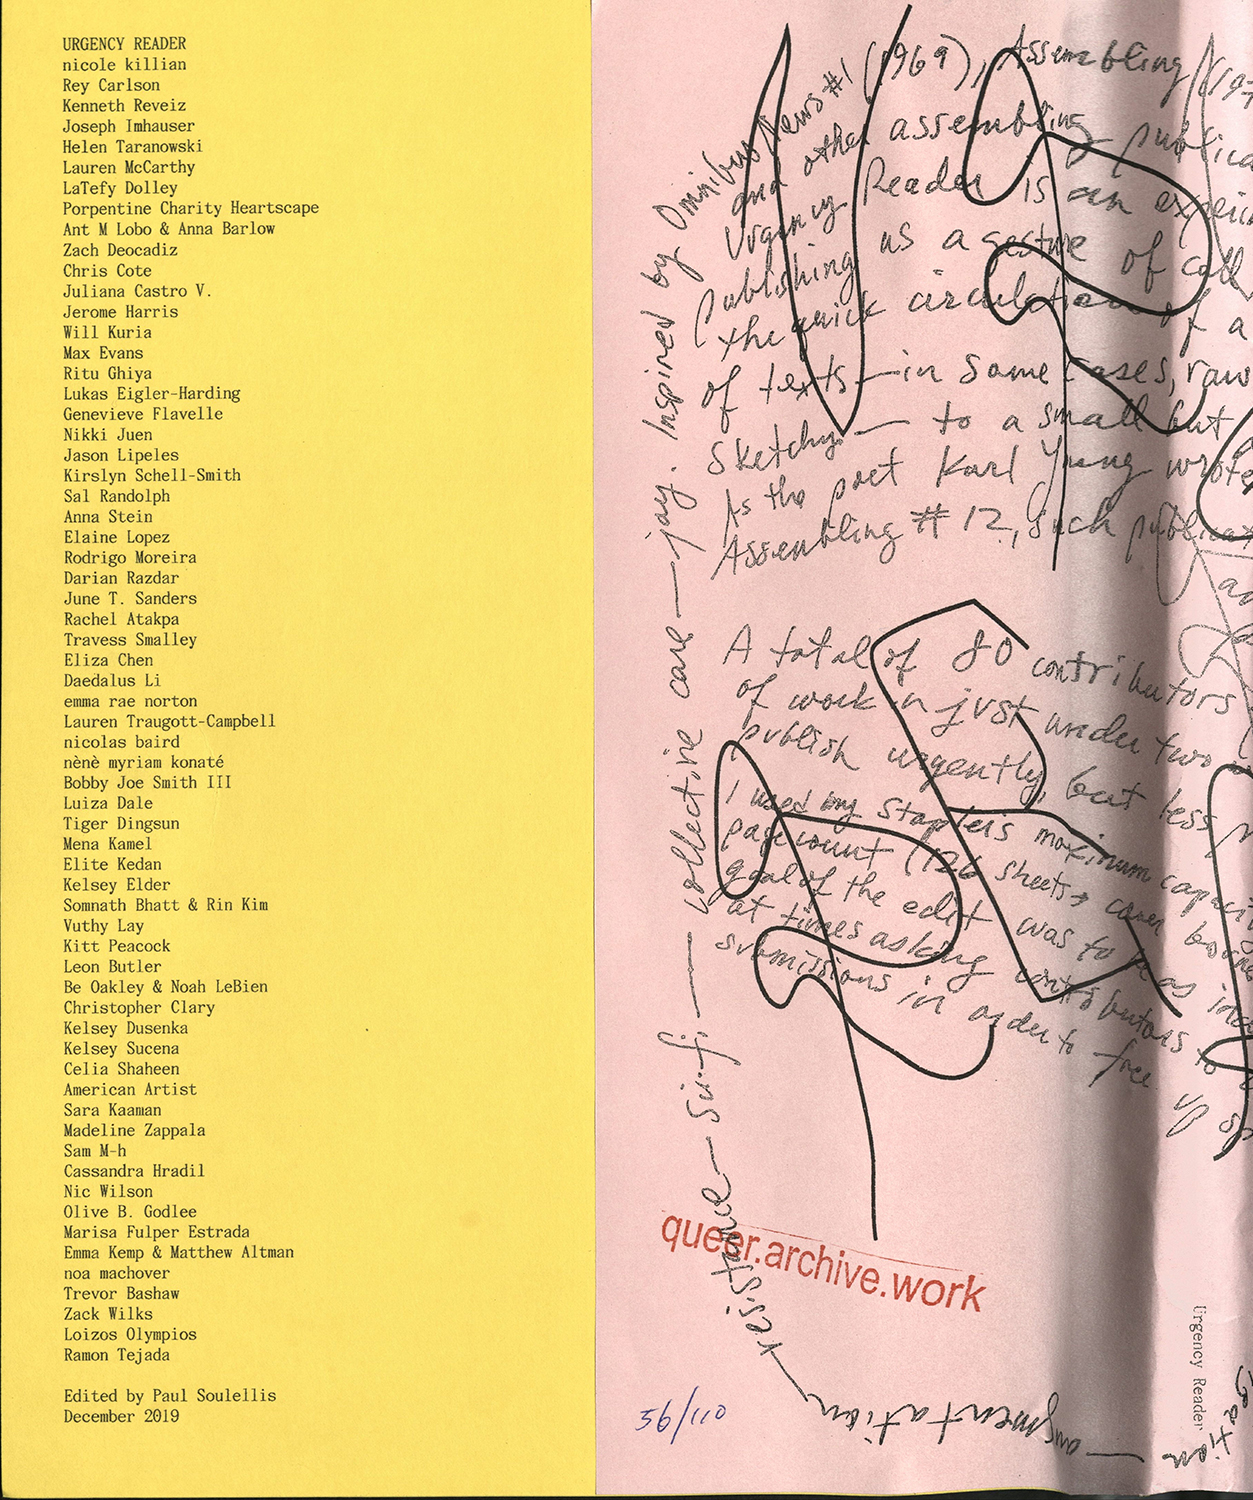 URGENCY READER
nicole killian
Rey Carlson
Kenneth Reveiz
Joseph Imhauser
Helen Taranowski
Lauren McCarthy
LaTefy Dolley
Porpentine Charity Heartscape
Ant M Lobo & Anna Barlow
Zach Deocadiz
Chris Cote
Juliana Castro V.
Jerome Harris
Will Kuria
Max Evans
Ritu Ghiya
Lukas Eigler-Harding
Genevieve Flavelle
Nikki Juen
Jason Lipeles
Kirslyn Schell-Smith
Sal Randolph
Anna Stein
Elaine Lopez
Rodrigo Moreira
Darian Razdar
June T. Sanders
Rachel Atakpa
Travess Smalley
Eliza Chen
Daedalus Li
emma rae norton
Lauren Traugott-Campbell
nicolas baird
nènè myriam konaté
Bobby Joe Smith III
Luiza Dale
Tiger Dingsun
Mena Kamel
Elite Kedan
Kelsey Elder
Somnath Bhatt & Rin Kim
Vuthy Lay
Kitt Peacock
Leon Butler
Be Oakley & Noah LeBien
Christopher Clary
Kelsey Dusenka
Kelsey Sucena
Celia Shaheen
American Artist
Sara Kaaman
Madeline Zappala
Sam M-h
Cassandra Hradil
Nic Wilson
Olive B. Godlee
Marisa Fulper Estrada
Emma Kemp & Matthew Altman
noa machover
Trevor Bashaw
Zack Wilks
Loizos Olympios
Ramon Tejada
Edited by Paul Soulellis
December 2019
Inspired by Omnibus News #1 (1969), Assembling (197
and other assembling publica
Urgency Reader is an experi
publishing as a gesture of coll
the quick circulation of a
of texts—in some cases, raw
sketchy— to a small but
As the poet Karl Young wrote
Assembling #12, such publicat
A total of 80 contributors
of work in just under two
publish urgently, but less
I used my stapler's maximum capacit
page count (126 sheets + cover
goal of the edit was to be as
at times asking contributors to
submissions in order to free up
augmentation — resistance — sci-fi — collective care — joy.
queer.archive.work
56/110
Urgency Reader